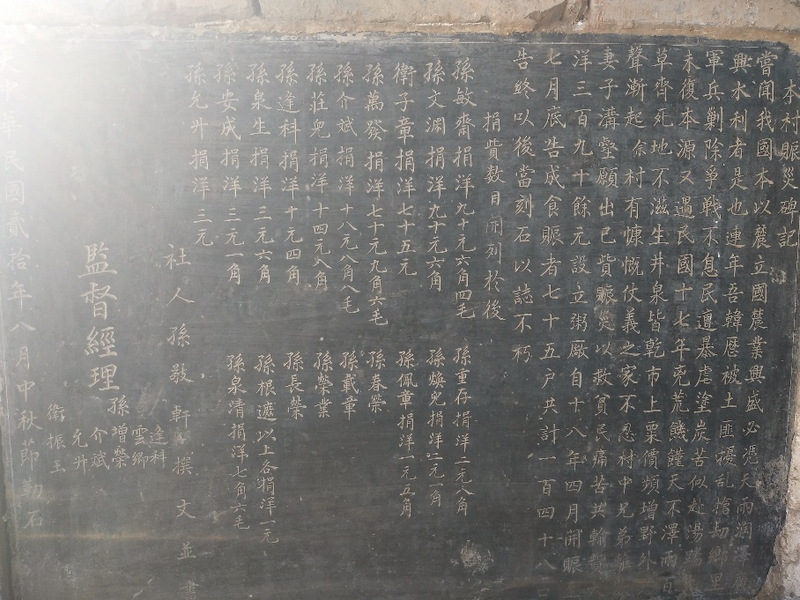 本村賑災碑記
嘗聞我國本以農立國農業興盛必憑天雨潤澤
興水利者是也連年吾韓歷被土匪擾乱搶劫鄉里
軍兵剿除爭戰不息民遭暴虐塗炭苦似
未復本源又遇民國十七年兇荒饑饉天不澤雨百
草齊死地不滋生井泉皆乾市上粟價頻增野外
聲漸起余村有慷慨仗義之家不忍村中兄弟
妻子溝壑願出己貲賑災以救貧民痛苦共輸
洋三百九十餘元設立粥廠自十八年四月開賑
七月底告成食賑者七十五户共計一百四十八
告終以後當刻石以誌不朽
捐貲数目開列於後
孫敏齋捐洋九十元六角四毛
孫文淵捐洋九十元六角
衛子章捐洋七十五元
孫萬發捐洋七十元九角六毛
孫介斌捐洋十八元八角八毛
孫莊兒捐洋十四元八角
孫逢科捐洋十元四角
孫泉生捐洋三元六角
孫安成捐洋三元一角
孫允升捐洋三元
孫重存捐洋二元八角
孫煥兒捐洋二元二角
孫佩章捐洋一元五角
孫春榮
孫戴章
孫榮業
孫長榮
孫根遮以上各捐洋一元
孫泉清捐洋七角六毛
社人孫敬軒撰文並書
監督經理
逢科
雲卿
孫增榮
介斌
允升
衛振玉
大中華民國貳拾年八月中秋節勒石